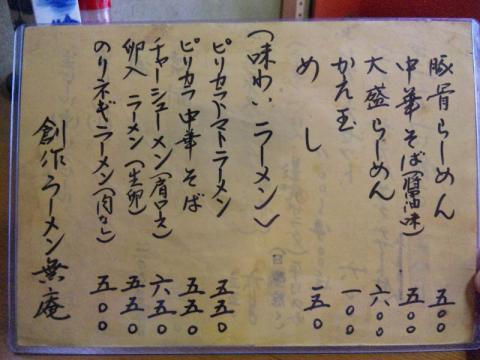 豚骨らーめん 五〇〇
中華そば(醤油味) 五〇〇
大盛らーめん 六〇〇
かえ玉 一〇〇
めし 一五〇
(味わいラーメン)
ピリカラトマトラーメン 五五〇
ピリカラ中華そば 五五〇
チャーシューメン(肩ロース) 六五〇
卵入ラーメン(生卵) 五五〇
のりネギラーメン(肉なし) 五〇〇
創作ラーメン無庵